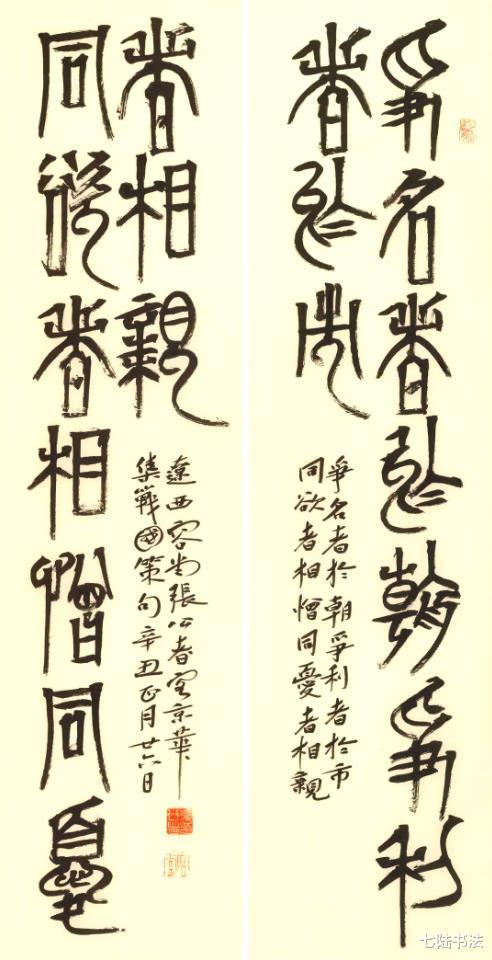 爭名者於朝爭利
者於市
爭名者於朝爭利者於市
同欲者相憎同憂者相親
同欲者相憎同憂
者相親
遼西容堂張公者客京華
集戰國策句辛丑正月廿六日
七陆书法